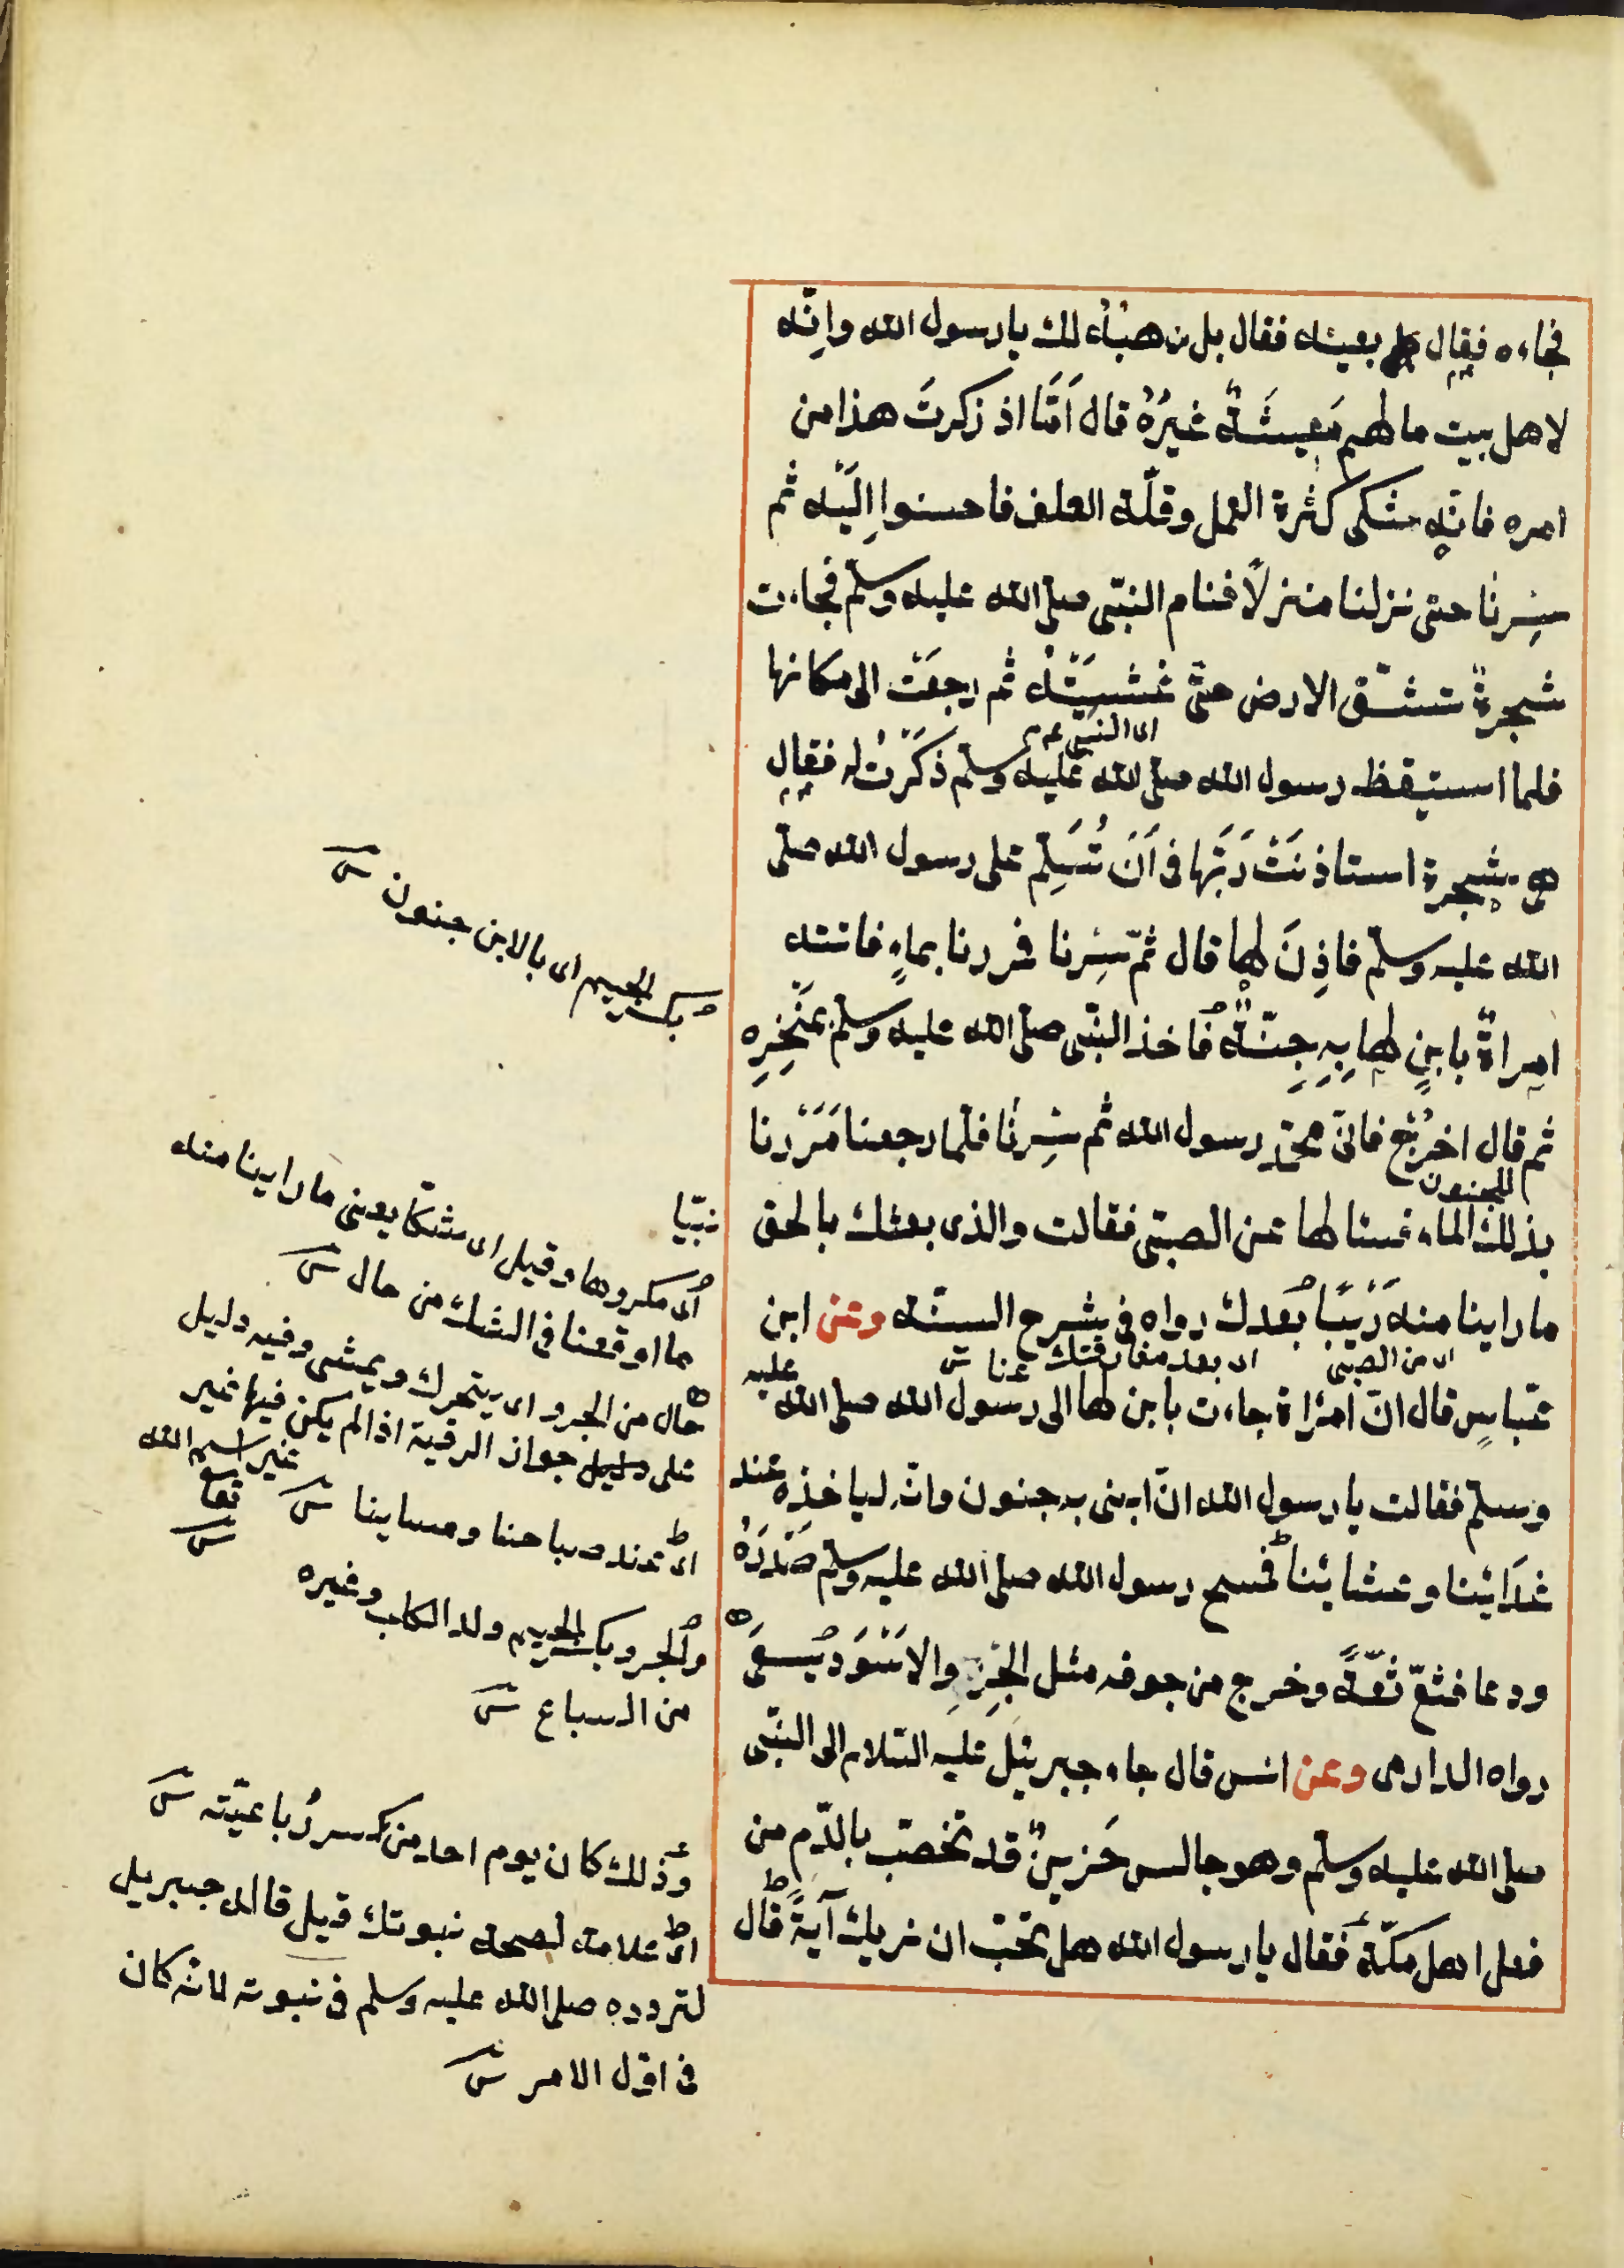 فجاءه فقال بعينه فقال بل نهبُهُ لك يا رسول الله وانّه
لاهل بيت ما لهم مَعِيشَةٌ غيرُهُ قال اَمَّا اذ ذكرتَ هذا من
امره فانه شكى كثرة العمل وقلّة العلف فاحسنوا اِليْه ثم
سِرنا حتى نزلنا منزلاً فنام النبىّ صلى الله عليه وسلم فجاءت
شجرةٌ تشقّ الارض حتّى غَشِيَتْه ثم رجعَتْ الى مكانها
اى النبى عم
فلما استيقظ رسول الله صلى الله عليه وسلم ذَكَرْتُ له فقال
هى شجرة استاذنَتْ رَبَّها فى اَنْ تُسَلِّم على رسول الله صلى
الله عليه وسلم فاذِنَ لها قال ثمّ سِرنا فمررنا بماءٍ فاتته
امراةٌ بابنٍ لها بِهِ جِنّةٌ فاخذ النبّى صلى الله عليه وسلم بمَنْخِرِه
ثم قال اخرُجْ فانّى محمّد رسول الله ثم سِرنا فلما رجعنا مَرَرْنا
للجنون
بذلك الماء فسالها عن الصبّى فقالت والذى بعثك بالحق
نبيّا
ما راينا منه رَيْبًا بَعدك رواه فى شرح السنّة وعن ابن
اى من الصبّى اى بعد مفارقتك عنا ش
عبّاسٍ قال انّ امرْاة جاءت بابن لها الى رسول الله صلى الله عليه
وسلم فقالت يا رسول الله انّ ابنى به جنون وانّه لياخذه عند
غدَائِنا وعشائنا فمسح رسول الله صلى الله عليه وسلم صَدْرَهُ
ودعا فثعّ ثعّةً وخرج من جوفه مثل الجِرْوِ الاَسْوَد يَسْعَى
رواه الدارمى وعن انس قال جاء جبرئيل عليه السّلام الى النبّى
صلى الله عليه وسلم وهو جالس حَزينٌ قد تخضّب بالدّم من
فعل اهل مكّة فقال يا رسول الله هل تحّب ان نريك آيةً قال
بكسر الجيم اى بالابن جنون ش
اى مكروها وقيل اى شكّا يعنى ما راينا منه
ما اوقعنا فى الشك من حال ش
حال من الجرو اى يتحرك ويمشى وفيه دليل
على دليل جواز الرقية اذا لم يكن فيها غير
غير اسم الله
تعا
ش
اى عند صباحنا ومساينا ش
والجرو بكسر الجيم ولد الكلب وغيره
من السباع ش
وذلك كان يوم احد من كسر رُباعيّته ش
اى علامة لصحة نبوتك قيل قاله جبريل
لتردده صلى الله عليه وسلم فى نبوته لانه كان
فى اوّل الامر ش